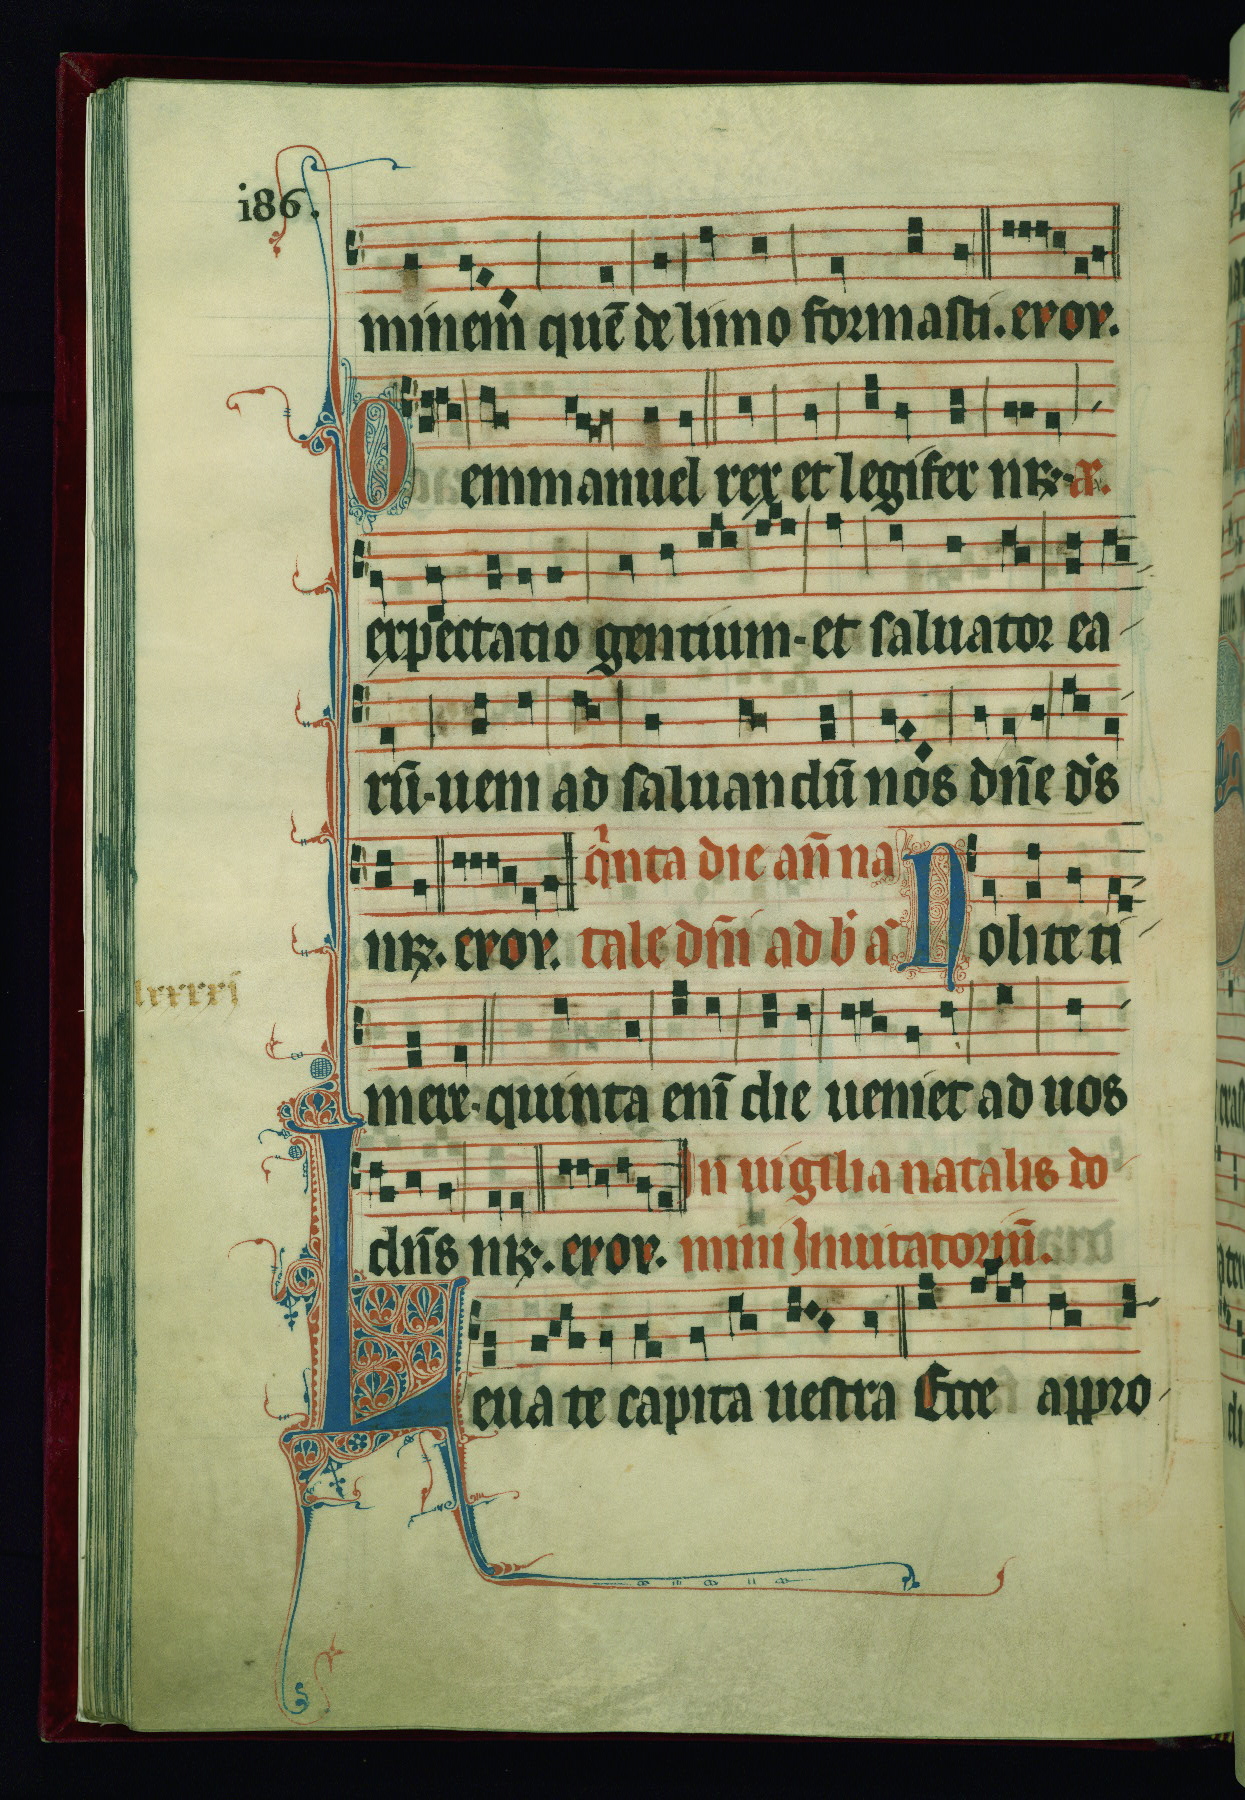 i86.
minem quē de limo formasti. evov.
O emmanuel rex et legifer nr̄.
expectatio gentium. et saluator ea
rū. ueni ad saluandū nos dn̄e ds
nr̄. evov. q̄nta die an̄ na
tale dn̄i ad b a Nolite ti
lxxxxi
mere. quinta enī die ueniet ad uos
dn̄s nr̄. evov. In uigilia natalis do
mini Inuitatoriū.
Leuate capita uestra Ecce appro